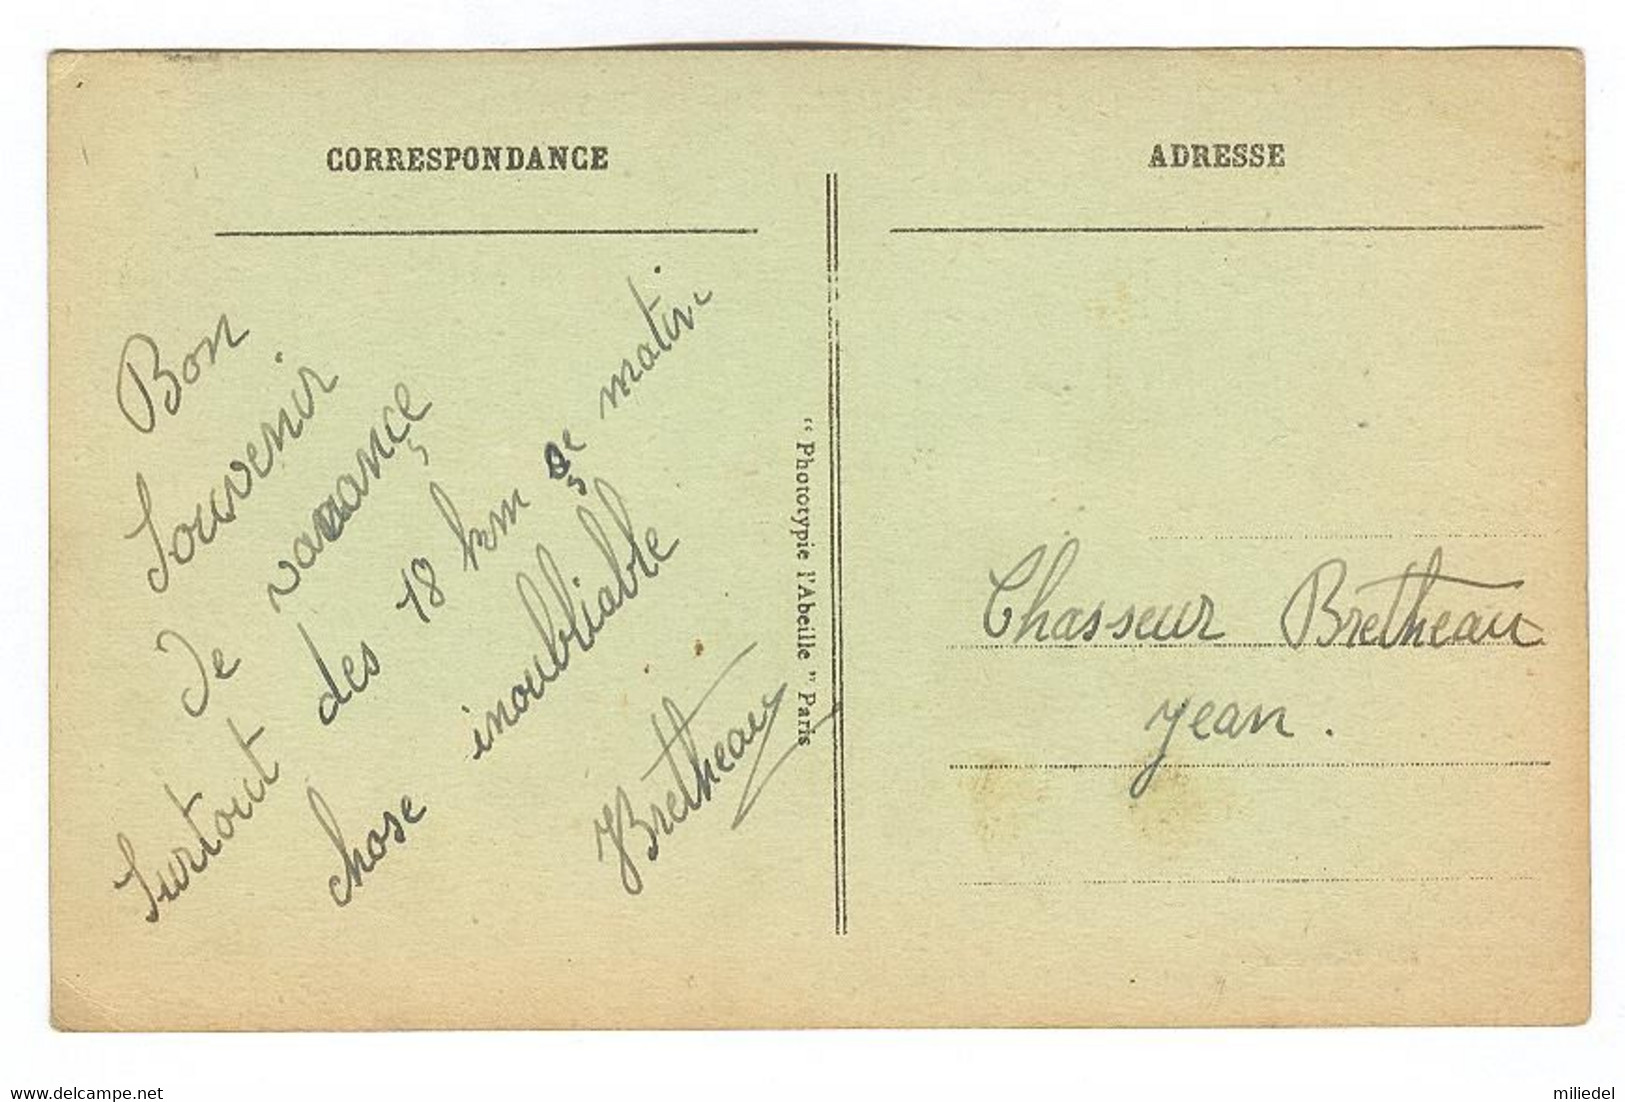 CORRESPONDANCE
ADRESSE
Bon
Souvenir
de vacance
Surtout des 18 km de matin
chose inoubliable
JBretheau
" Phototypie l'Abeille " Paris
Chasseur Bretheau
Jean.
www.delcampe.net
miliedel